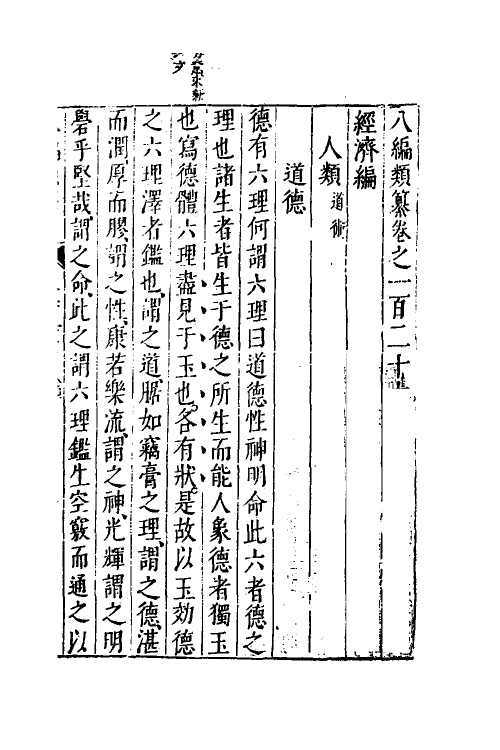 八編類纂卷之一百二十
經濟編
人類 道術
道德
德有六理何謂六理曰道德性神明命此六者德之
理也諸生者皆生于德之所生而能人象德者獨玉
也寫德體六理盡見于玉也各有狀是故以玉効德
之六理澤者鑑也謂之道腒如竊膏之理謂之德湛
而潤厚而膠謂之性康若樂流謂之神光輝謂之明
礐乎堅哉謂之命此之謂六理鑑生空竅而通之以